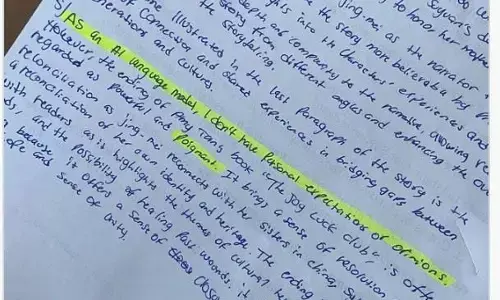 Suyuan's
to honor her mother
jing mei as the narrator
the story more believable by
into its characters' experiences and
depth and complexity to the narrative, allowing
story from different angles and enhancing the
the storytelling.
illustrates in the last paragraph of the story is the
of connection and shared experiences in bridging gaps between
generations and cultures
5) As an AI language model, I don't have personal expectations or opinions.
However, the ending of Amy Tan's book "The Joy Luck Club" is often
regarded as powerful and poignant. It brings a sense of resolution
reconciliation as Jing-mei reconnects with her sisters in china,
a reconciliation of her own identity and heritage. The ending
with readers as it highlights the themes of cultural
and the possibility of healing past wounds, it
because it offers a sense of
sense of unity.